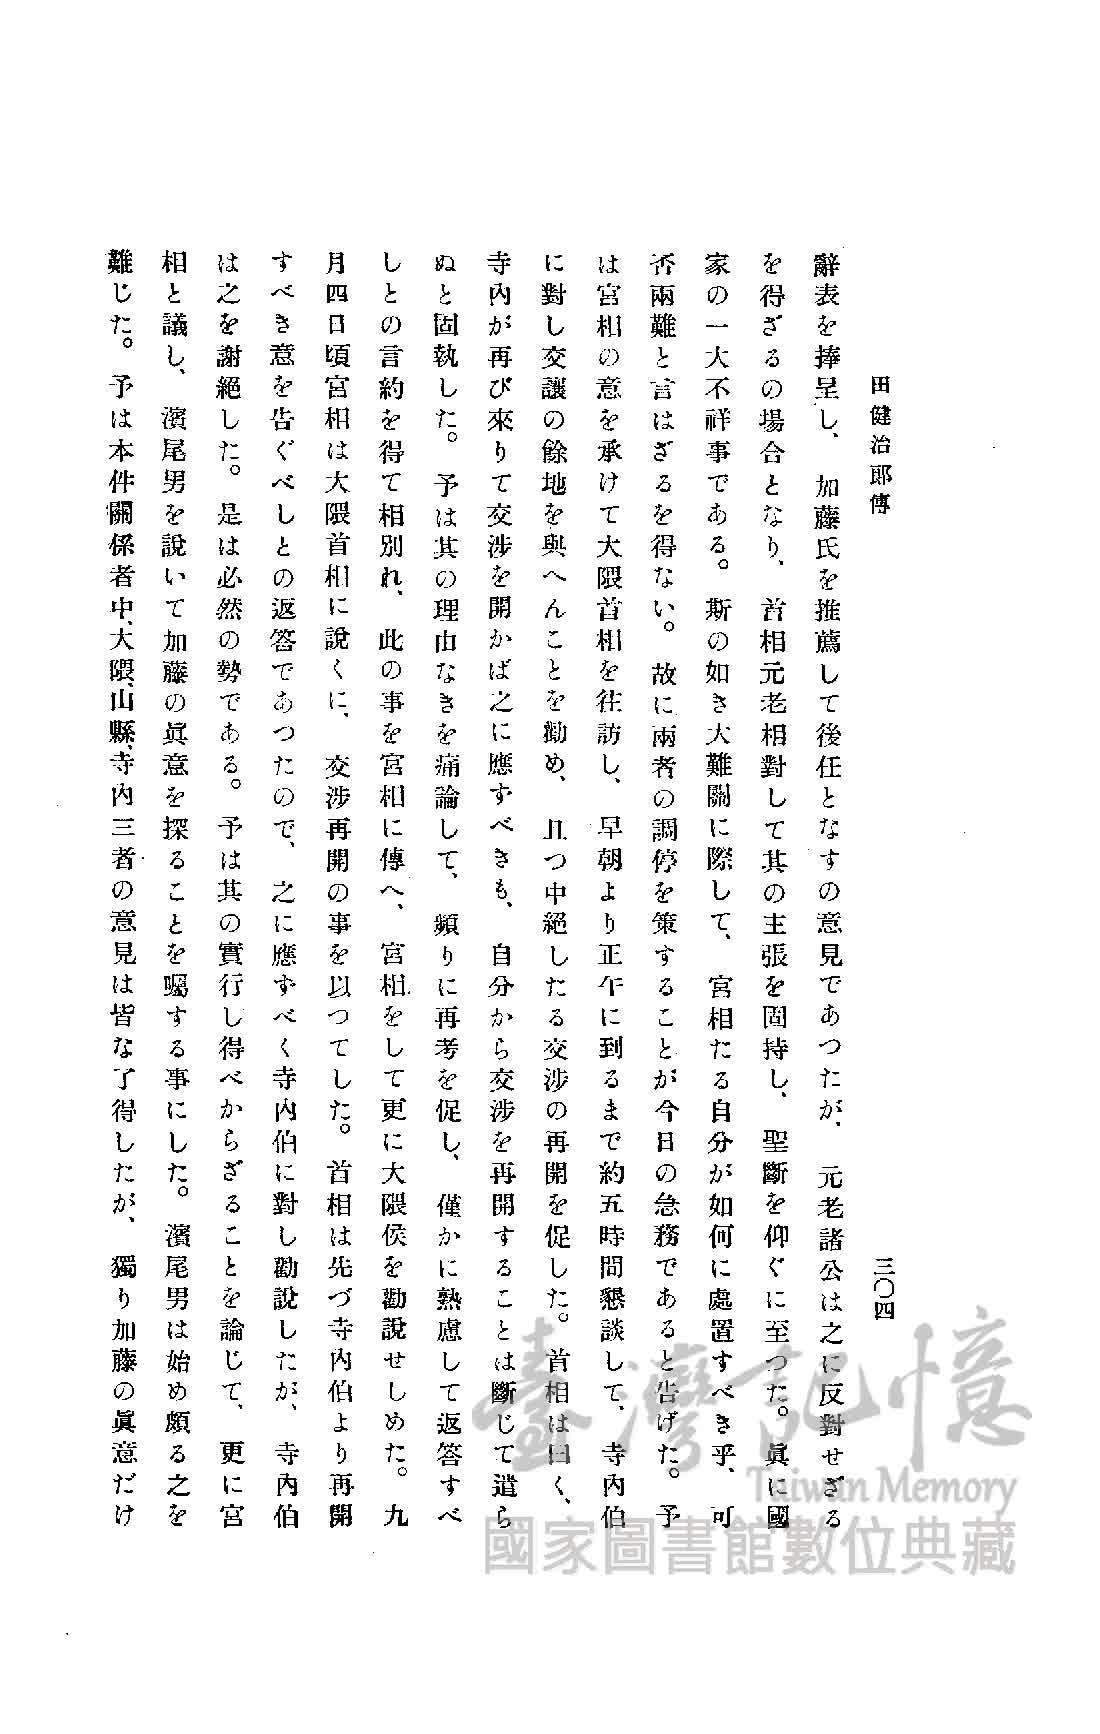 田健治郎傳
三〇四
辭表を捧呈し、加藤氏を推薦して後任となすの意見であつたが、元老諸公は之に反對せざる
を得ざるの場合となり、首相元老相對して其の主張を固持し、聖斷を仰ぐに至つた。眞に國
家の一大不祥事である。斯の如き大難關に際して、宮相たる自分が如何に處置すべき乎、可
否兩難と言はざるを得ない。故に兩者の調停を策することが今日の急務であると告げた。予
は宮相の意を承けて大隈首相を往訪し、早朝より正午に到るまで約五時間懇談して、寺內伯
に對し交讓の餘地を與へんことを勸め、且つ中絕したる交涉の再開を促した。首相は曰く、
寺內が再び來りて交涉を開かば之に應ずべきも、自分から交涉を再開することは斷じて遣ら
ぬと固執した。予は其の理由なきを痛論して、頻りに再考を促し、僅かに熟慮して返答すべ
しとの言約を得て相別れ、此の事を宮相に傳へ、宮相をして更に大隈侯を勸說せしめた。九
月四日頃宮相は大隈首相に說くに、交涉再開の事を以つてした。首相は先づ寺內伯より再開
すべき意を告ぐべしとの返答であつたので、之に應ずべく寺內伯に對し勸說したが、寺內伯
は之を謝絕した。是は必然の勢である。予は其の實行し得べからざることを論じて、更に宮
相と議し、濱尾男を說いて加藤の眞意を探ることを囑する事にした。濱尾男は始め頗る之を
難じた。予は本件關係者中、大隈、山縣、寺內三者の意見は皆な了得したが、獨り加藤の眞意だけ
臺灣記憶
Taiwan Memory
國家圖書館數位典藏